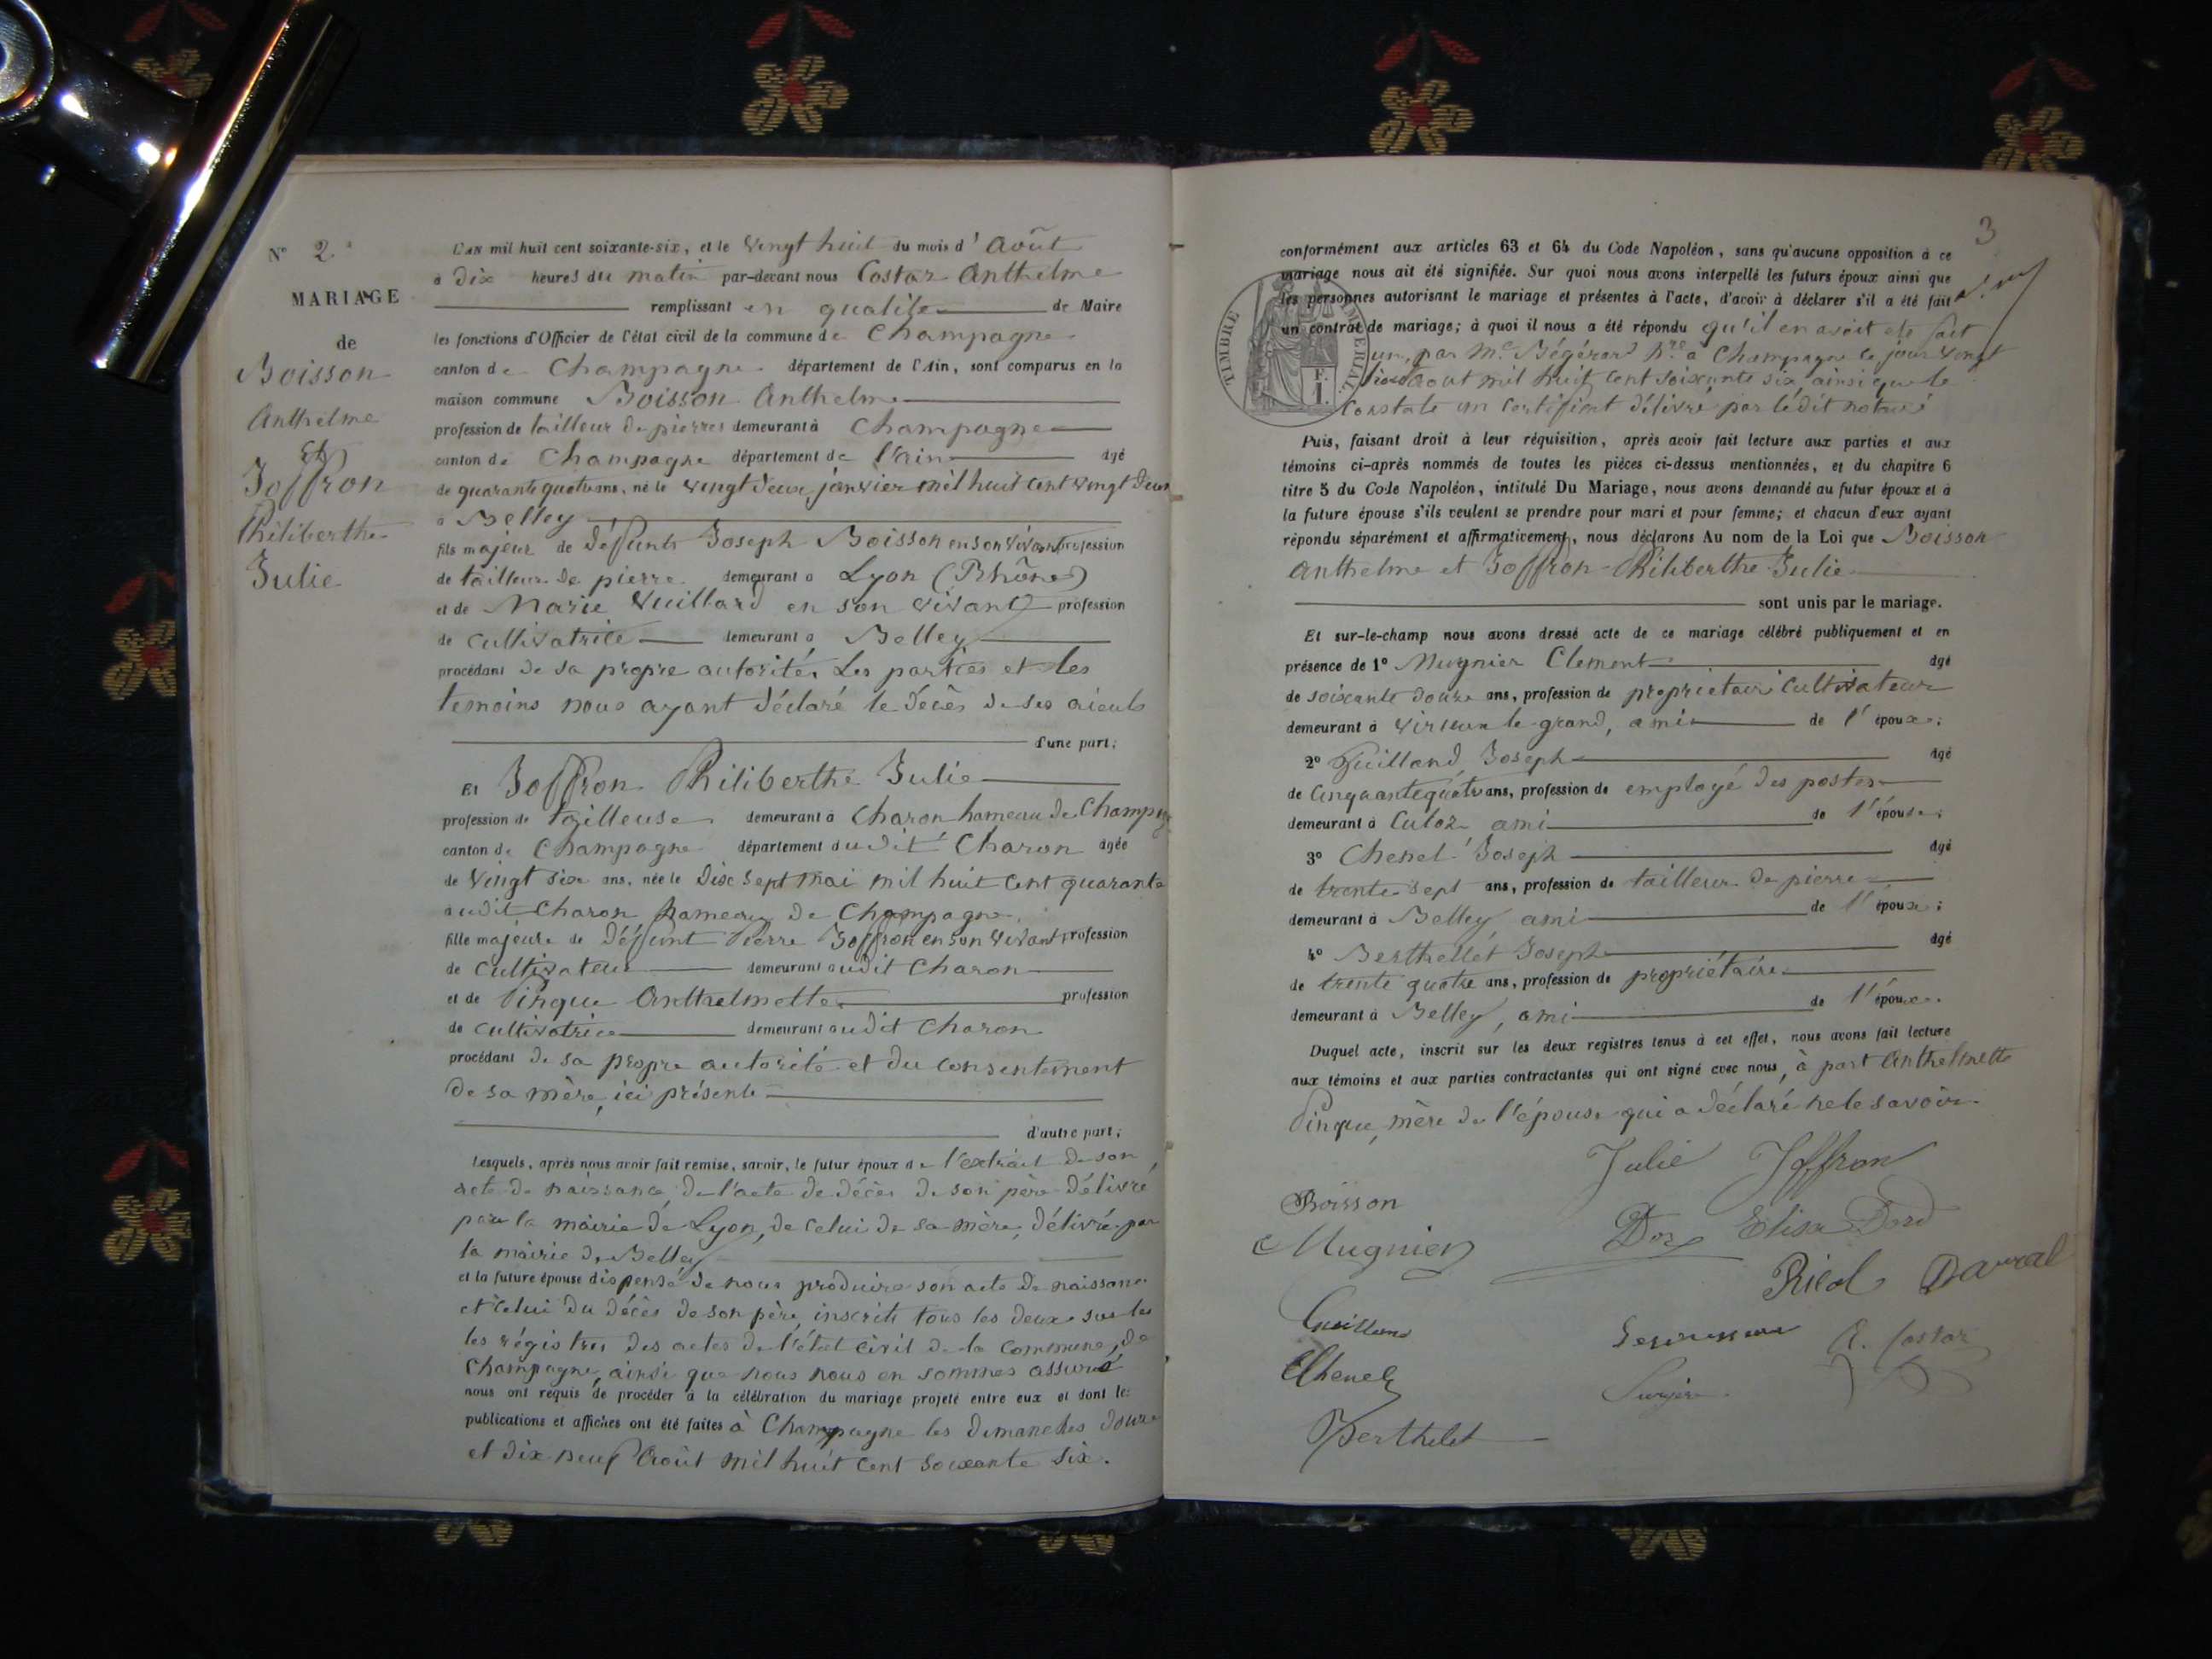 N° 2
MARIAGE
de
Boisson
Anthelme
Et
Joffron
Philiberthe
Julie
L'AN mil huit cent soixante-six, et le vingt huit du mois d' Août
à dix heures du matin par-devant nous Costaz Anthelme
remplissant en qualité de Maire
les fonctions d'Officier de l'état civil de la commune de Champagne
canton de Champagne département de l'Ain, sont comparus en la
maison commune Boisson Anthelme
profession de tailleur de pierres demeurant à Champagne
canton de Champagne département de l'ain âgé
de quarante quatre ans, né le vingt deux janvier mil huit cent vingt deux
à Belley
fils majeur de défunts Joseph Boisson en son vivant profession
de tailleur de pierre demeurant à Lyon (Rhône)
et de Marie Vuillard en son vivant profession
de cultivatrice demeurant à Belley
procédant de sa propre autorité. Les parties et les
témoins nous ayant déclaré le décès de ses aieuls
d'une part;
Et Joffron Philiberthe Julie
profession de tailleuse demeurant à Charon hameau de Champag
canton de Champagne département dudit Charon âgée
de vingt six ans, née le dix sept mai mil huit cent quarante
audit Charon hameau de Champagne
fille majeure de défunt Pierre Joffron en son vivant profession
de cultivateur demeurant audit Charon
et de Pinque Anthelmette profession
de cultivatrice demeurant audit Charon
procédant de sa propre autorité et du consentement
de sa mère, ici présente
d'autre part;
Lesquels, après nous avoir fait remise, savoir, le futur époux de l'extrait de son
acte de naissance, de l'acte de décès de son père délivré
par la mairie de Lyon, de celui de sa mère, délivré par
la mairie de Belley
et la future épouse dispensé de nous produire son acte de naissance
et celui du décès de son père, inscrits tous les deux sur les
les régistres des actes de l'état civil de la commune de
Champagne, ainsi que nous nous en sommes assuré
nous ont requis de procéder à la célébration du mariage projeté entre eux et dont les
publications et affiches ont été faites à Champagne les dimanches douze
et dix neuf Août mil huit cent soixante six.
3
conformément aux articles 63 et 64 du Code Napoléon, sans qu'aucune opposition à ce
mariage nous ait été signifiée. Sur quoi nous avons interpellé les futurs époux ainsi que
les personnes autorisant le mariage et présentes à l'acte, d'avoir à déclarer s'il a été fait
un contrat de mariage; à quoi il nous a été répondu qu'il en avait été fait
un, par Me Bégérard Nre à Champagne le jour vingt
août mil huit cent soixante six, ainsi que le
constate un certificat délivré par ledit notaire
TIMBRE IMPÉRIAL
F.
1.
Puis, faisant droit à leur réquisition, après avoir fait lecture aux parties et aux
témoins ci-après nommés de toutes les pièces ci-dessus mentionnées, et du chapitre 6
titre 5 du Code Napoléon, intitulé Du Mariage, nous avons demandé au futur époux et à
la future épouse s'ils veulent se prendre pour mari et pour femme; et chacun d'eux ayant
répondu séparément et affirmativement, nous déclarons Au nom de la Loi que Boisson
Anthelme et Joffron Philiberthe Julie
sont unis par le mariage.
Et sur-le-champ nous avons dressé acte de ce mariage célébré publiquement et en
présence de 1° Mugnier Clement âgé
de soixante douze ans, profession de propriétaire cultivateur
demeurant à Virieux le grand, ami de l'époux;
2° Guilland Joseph âgé
de cinquante quatre ans, profession de employé des postes
demeurant à Culoz ami de l'épouse;
3° Chenel Joseph âgé
de trente sept ans, profession de tailleur de pierre
demeurant à Belley ami de l'époux;
4° Berthellet Joseph âgé
de trente quatre ans, profession de propriétaire
demeurant à Belley, ami de l'époux.
Duquel acte, inscrit sur les deux registres tenus à cet effet, nous avons fait lecture
aux témoins et aux parties contractantes qui ont signé avec nous, à part Anthelmette
Pinque, mère de l'épouse qui a déclaré ne le savoir.
Julie Joffron
Boisson
Mugnier
Elisa
Guilland
A. Costaz
Chenel
Berthelet